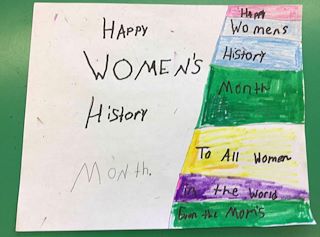 HAPPY
WOMEN'S
HISTORY
MONTH.
Happy
Womens
HISTORY
Month
To All Women
In the World
Even the Mom's